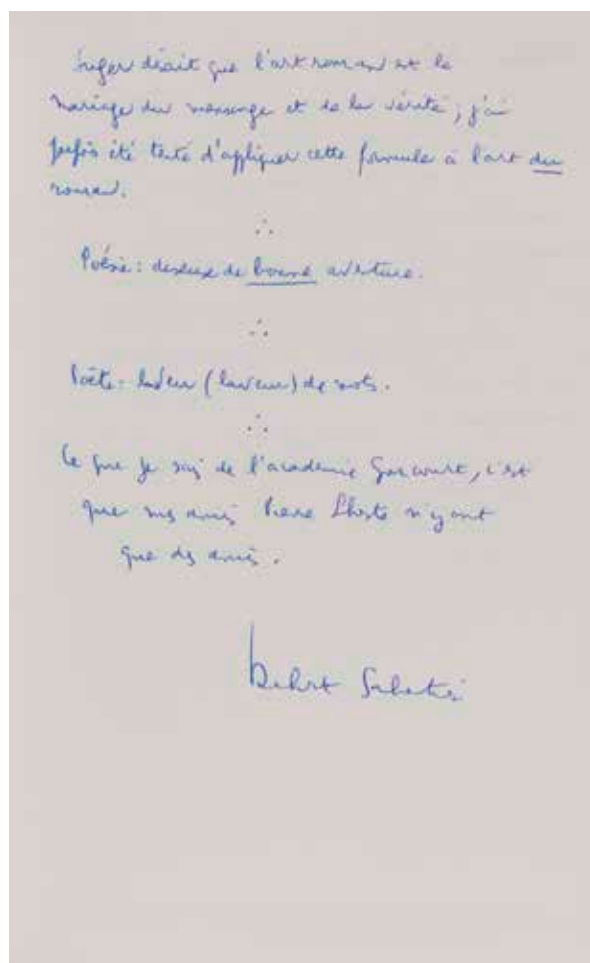 Suger disait que l'art roman est le
mariage du mensonge et de la vérité ; j'ai
parfois été tenté d'appliquer cette formule à l'art du
roman.
∴
Poésie : diseuse de bonne aventure.
∴
Poète : (laveur) de mots.
∴
Ce que je sais de l'académie Goncourt, c'est
que mes amis Pierre Lhoste n'y ont
que des amis.
Robert Sabatier